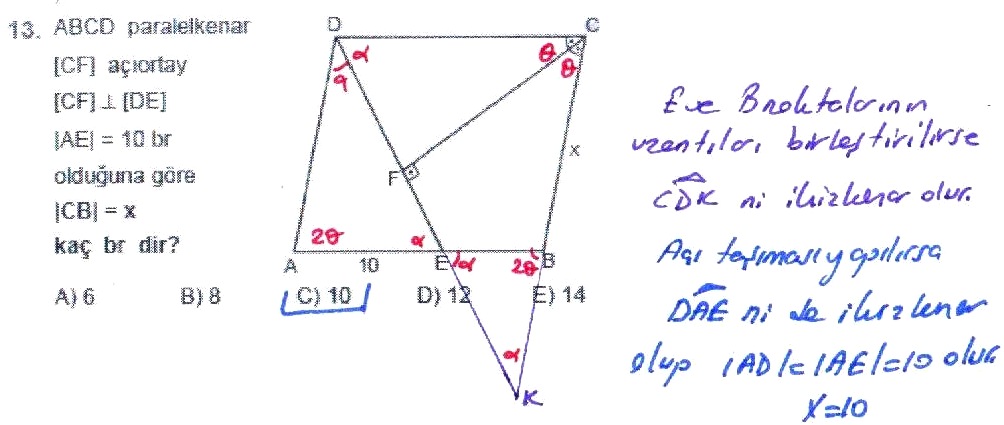 13. ABCD paralelkenar
[CF] açıortay
[CF] ⊥ [DE]
|AE| = 10 br
olduğuna göre
|CB| = x
kaç br dir?
A) 6 B) 8 C) 10 D) 12 E) 14
D C
α θ
a θ
x
F
2θ α
A 10 E α 2θ B
α
K
E ve B noktalarının
uzantıları birleştirilirse
CDK ni ikizkenar olur.
Açı taşıması yapılırsa
DAE ni de ikizkenar
olup |AD|=|AE|=10 olur
X=10